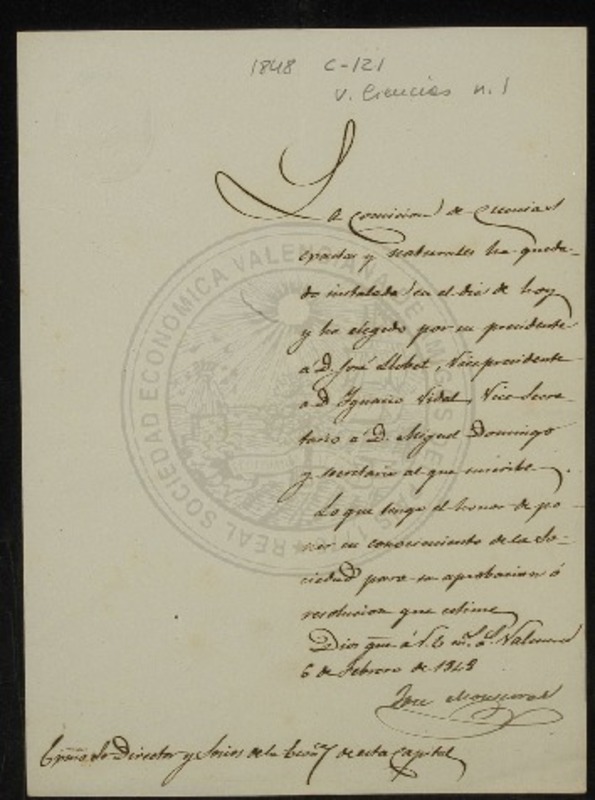 1848 C-121
V. Ciencias n. 1
La Comicion de Ciencias
exactas y naturales ha queda-
do instalada en el dia de hoy
y ha elegido por su precidente
á D. José Llobet, Vicepresidente
a D. Ignacio Vidal, Vice-Secre-
tario á D. Miguel Domingo
y secretario al que suscribe.
Lo que tengo el honor de po-
ner en conocimiento de la So-
ciedad para su aprobacion ó
resolucion que estime
Dios gue á V. E. ms. as. Valencia
6 de Febrero de 1848
José Monserrat
Exmo Sr Director y Socios de la Econca de esta Capital
REAL SOCIEDAD ECONOMICA VALENCIANA DE